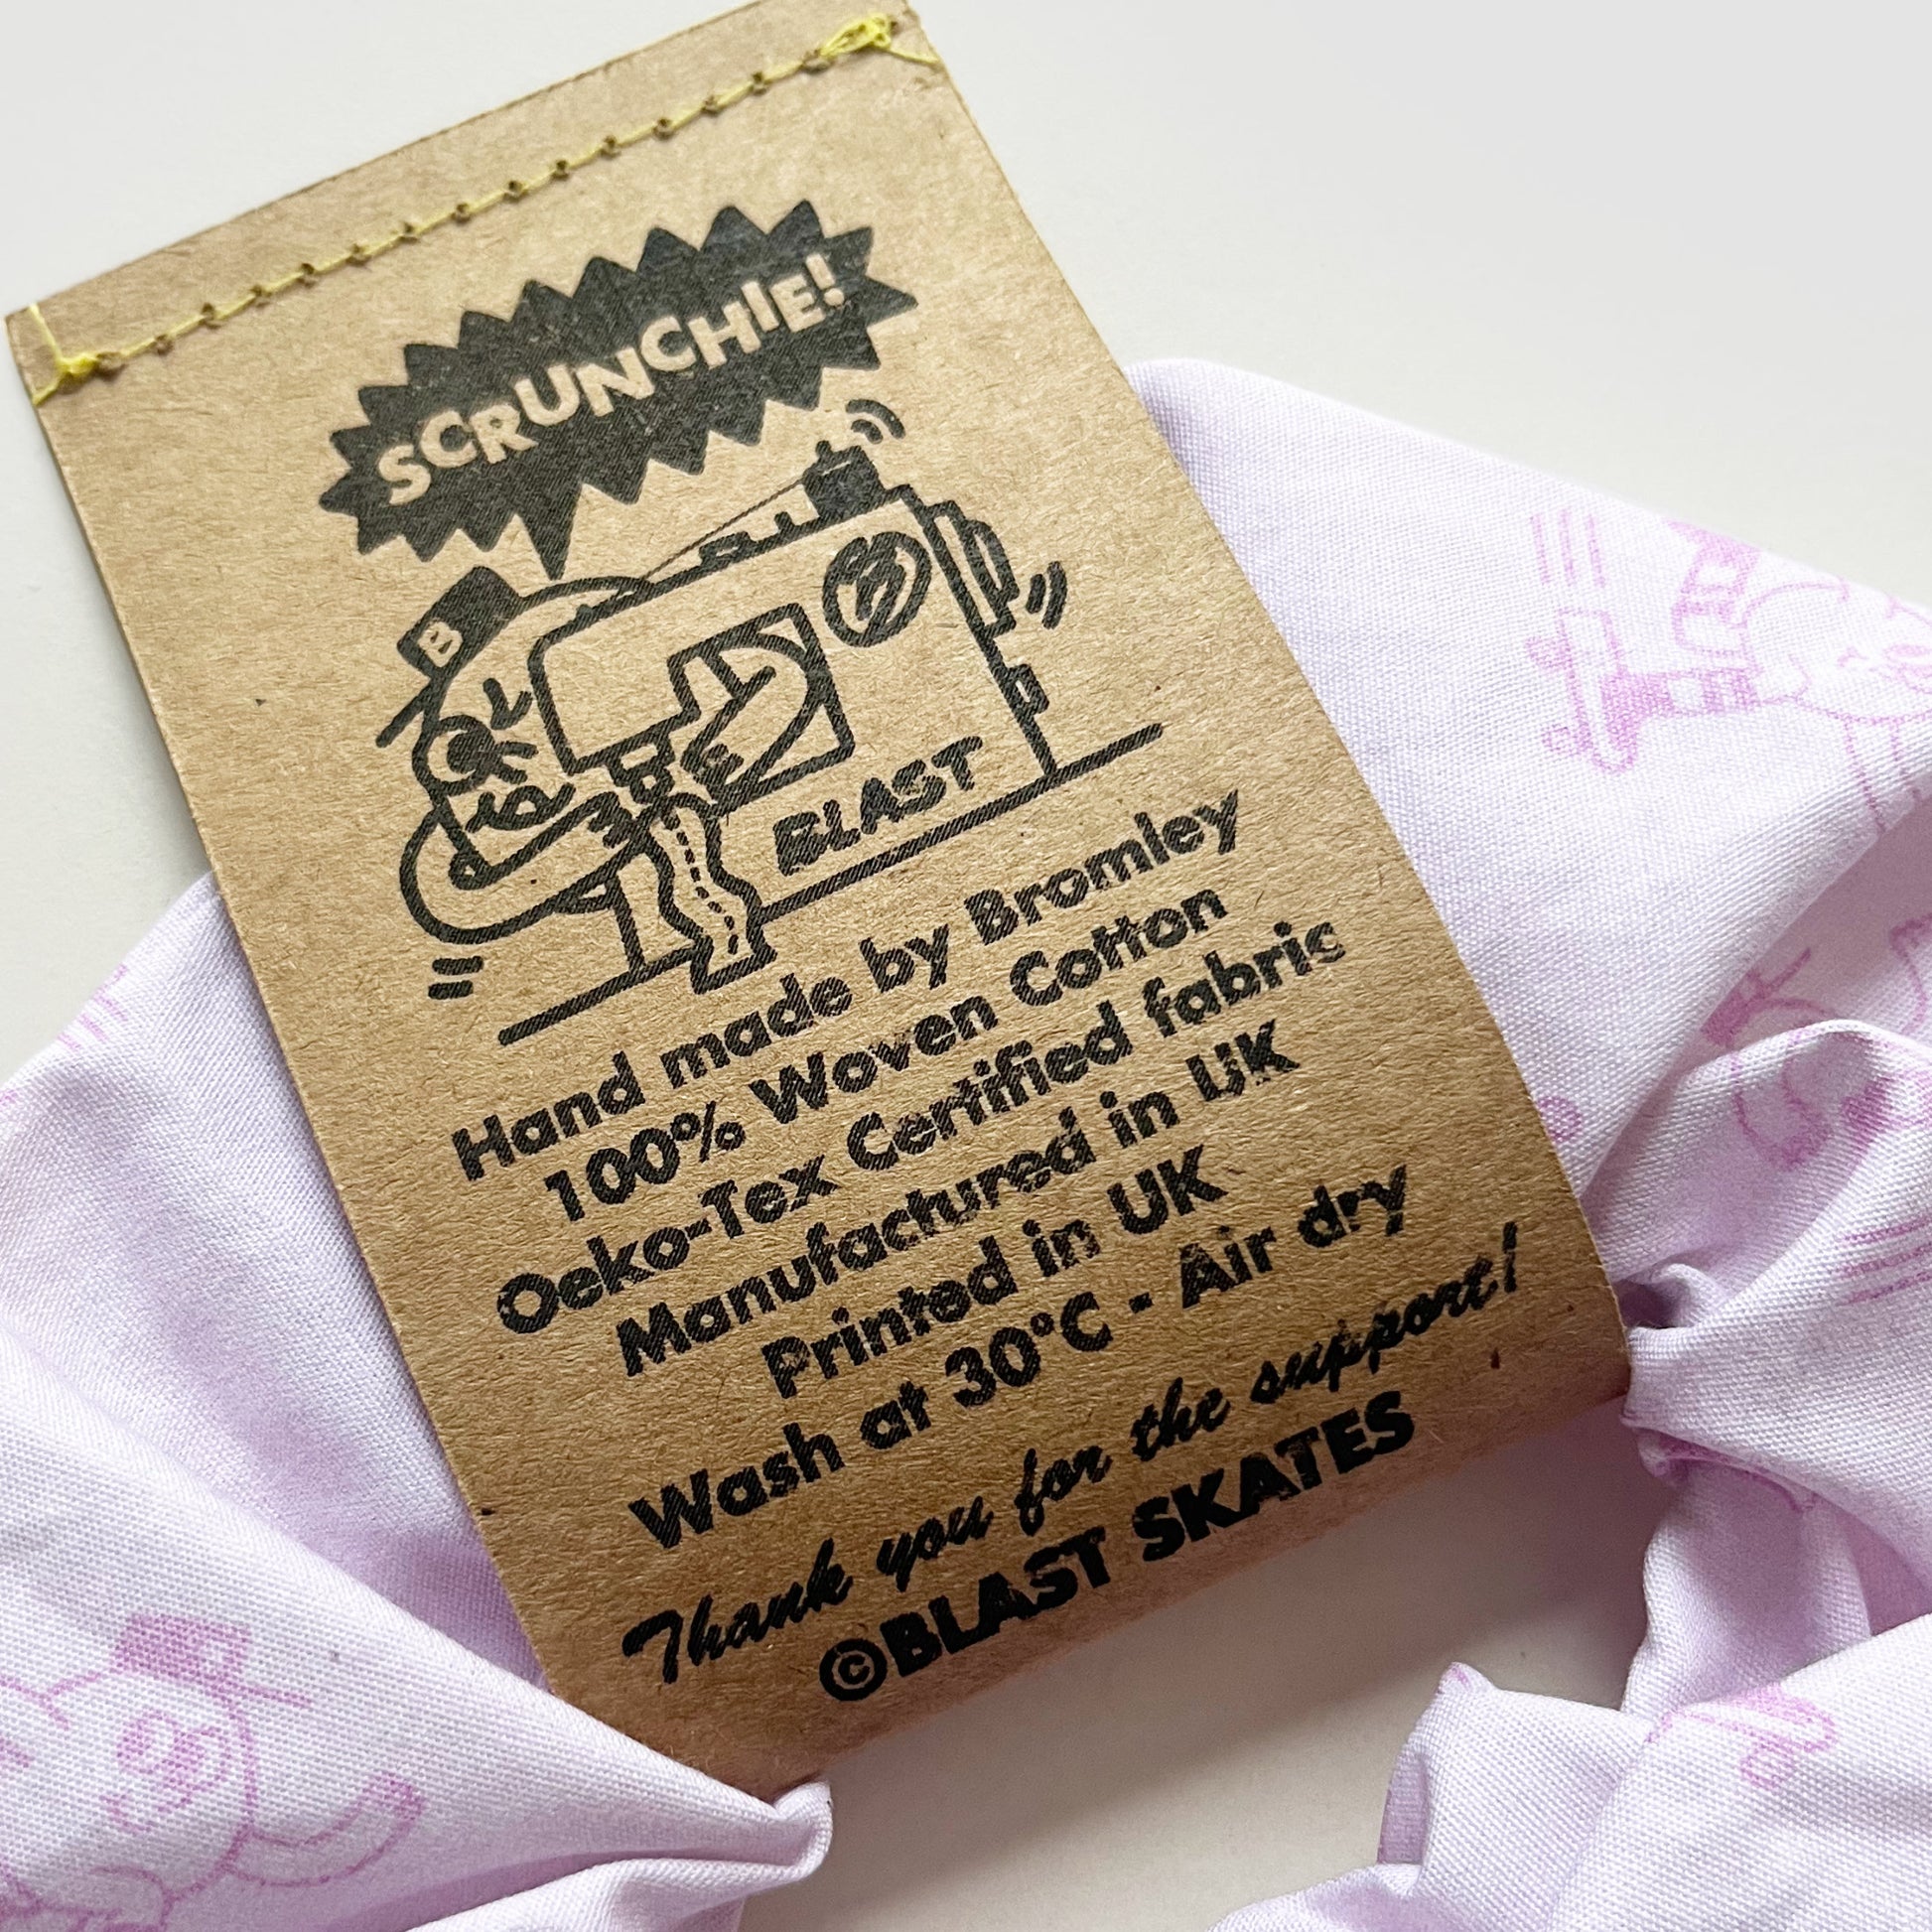 SCRUNCHIE!
B
B
BLAST
Hand made by Bromley
100% Woven Cotton
Oeko-Tex Certified fabric
Manufactured in UK
Printed in UK
Wash at 30°C - Air dry
Thank you for the support!
©BLAST SKATES